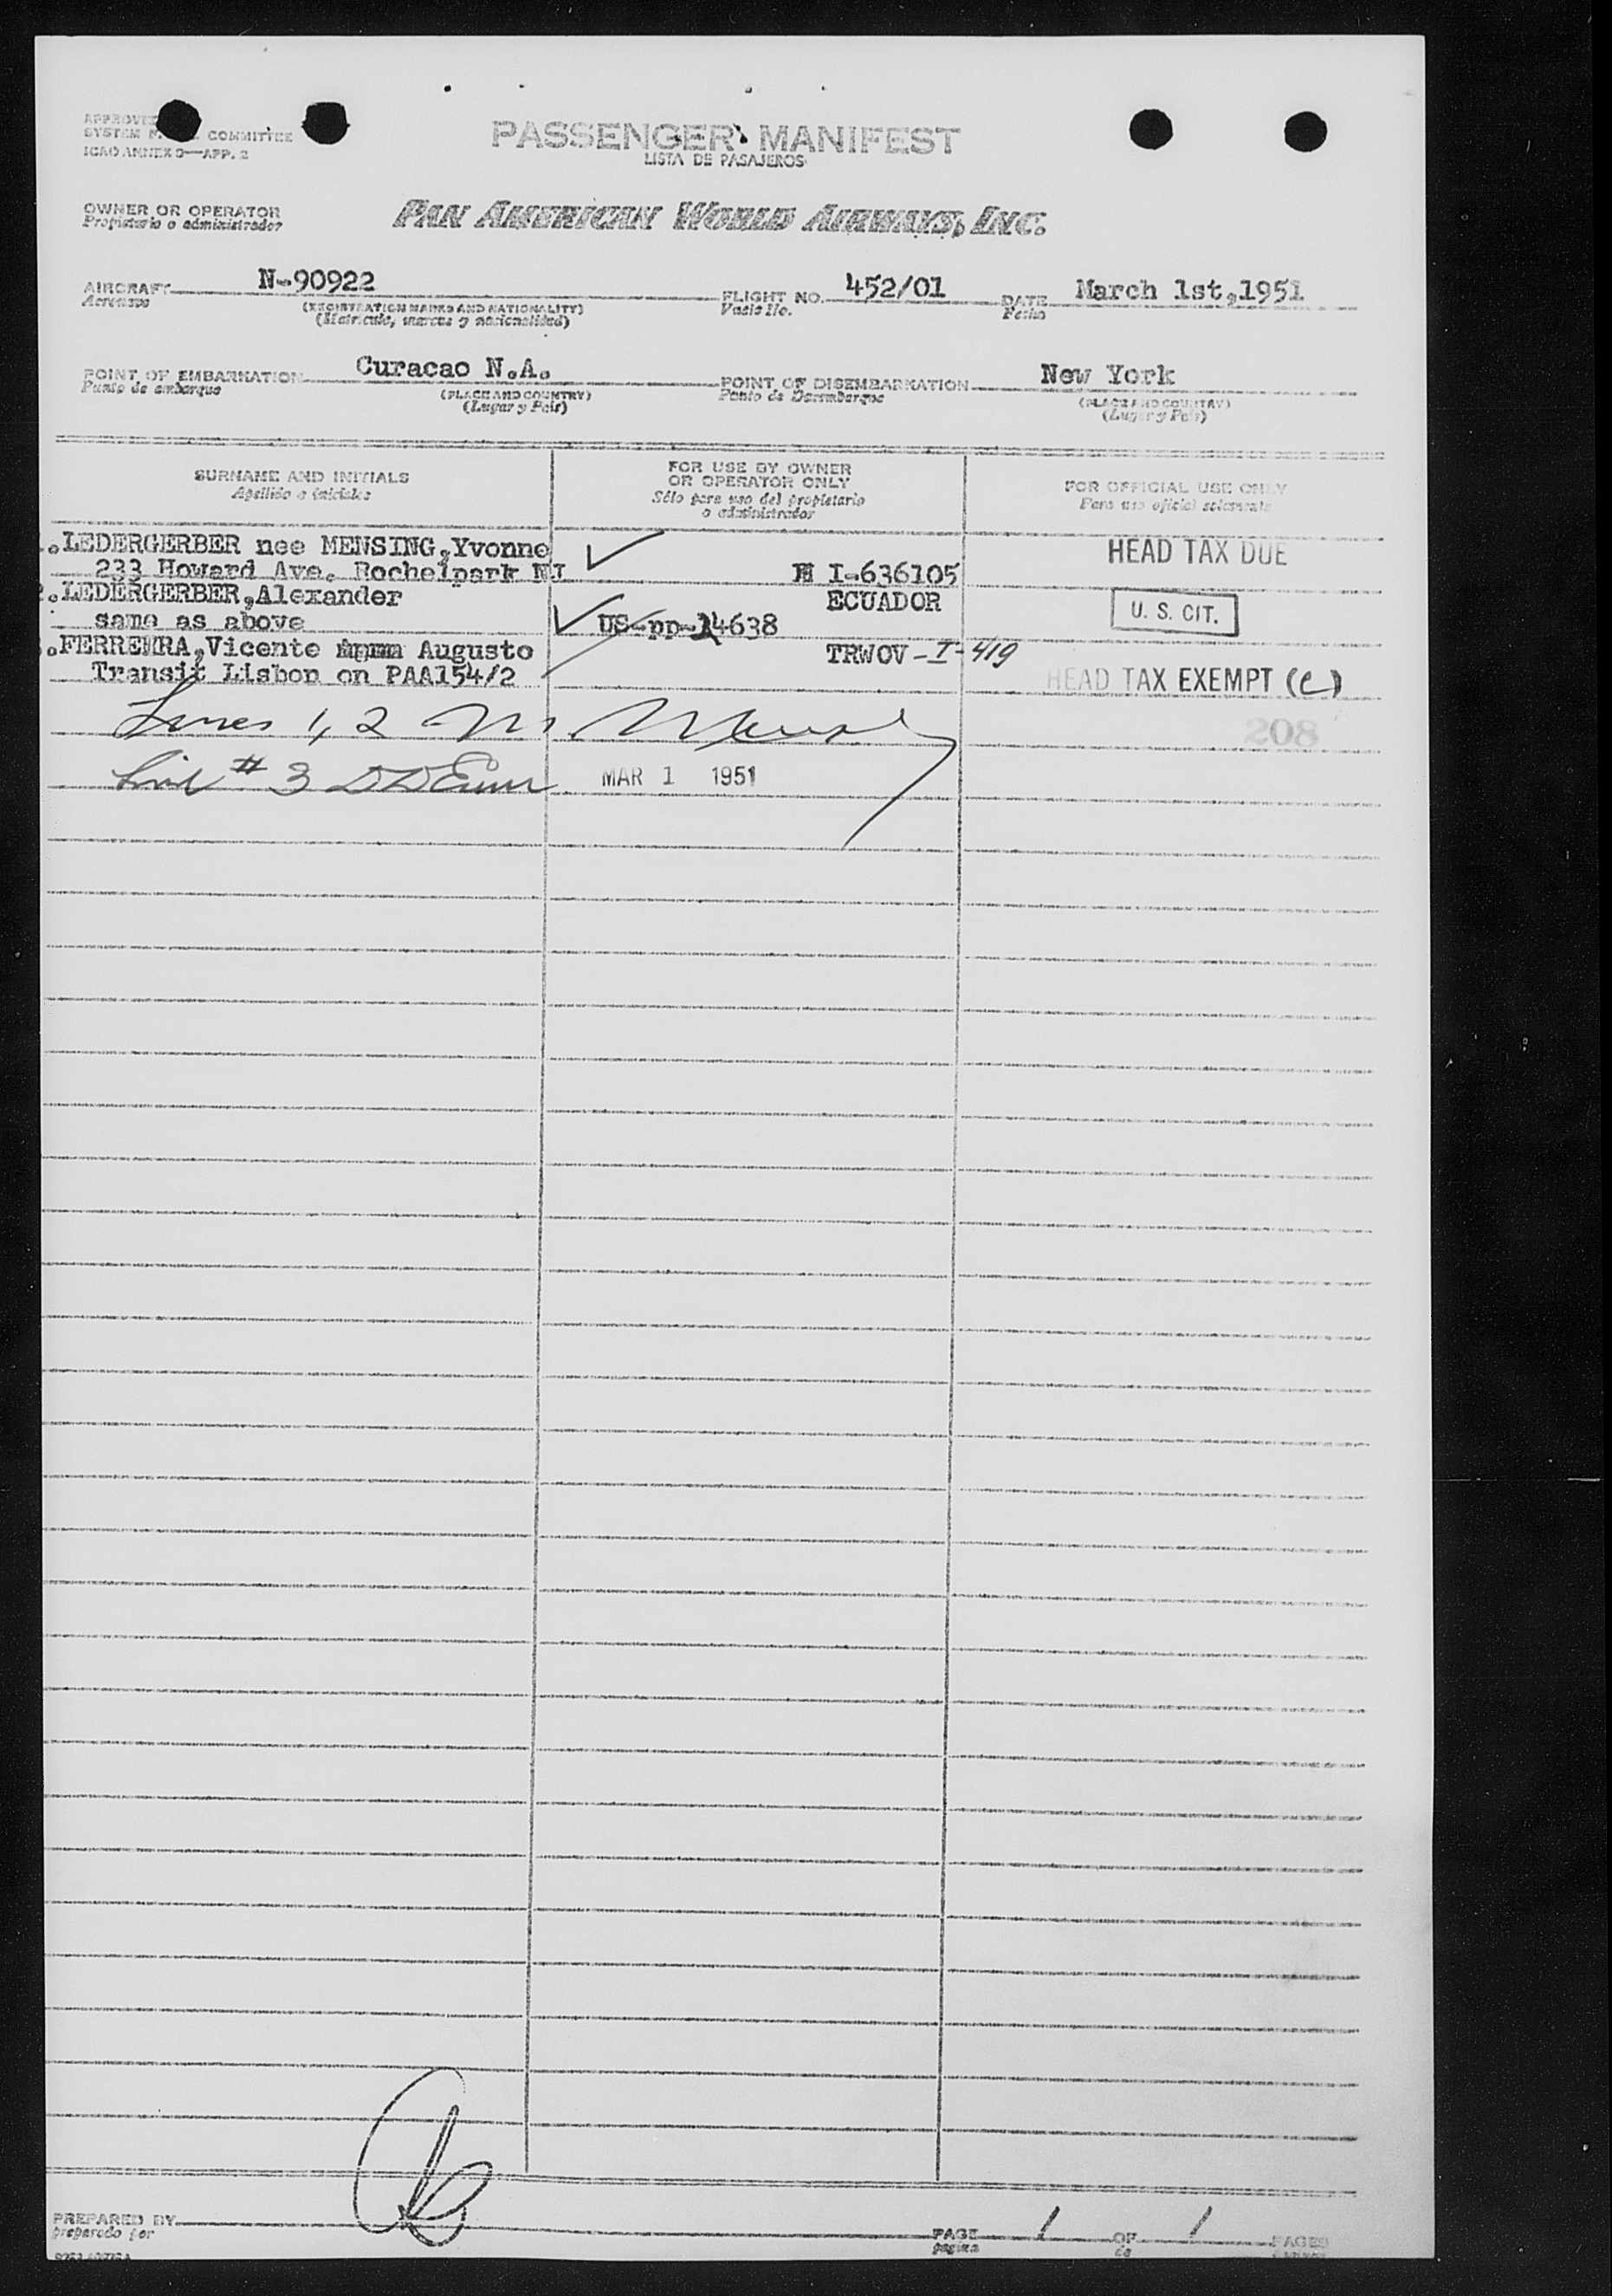 APPROVED
SYSTEM COMMITTEE
ICAO ANNEX 9—APP. 2
PASSENGER MANIFEST
LISTA DE PASAJEROS
OWNER OR OPERATOR
Propietario o administrador
PAN AMERICAN WORLD AIRWAYS, INC.
AIRCRAFT N-90922 FLIGHT NO. 452/01 DATE March 1st,1951
Aeronave (REGISTRATION MARKS AND NATIONALITY) Fecha
(Matricula, marcas y nacionalidad)
POINT OF EMBARKATION Curacao N.A. POINT OF DISEMBARKATION New York
Punto de embarque (PLACE AND COUNTRY) Punto de Desembarque (PLACE AND COUNTRY)
(Lugar y Pais) (Lugar y Pais)
SURNAME AND INITIALS
Apellido e iniciales
FOR USE BY OWNER
OR OPERATOR ONLY
Sólo para uso del propietario
o administrador
FOR OFFICIAL USE ONLY
Para uso oficial solamente
.LEDERGERBER nee MENSING,Yvonne HEAD TAX DUE
233 Howard Ave. Rochelpark NJ I-636105
2.LEDERGERBER,Alexander ECUADOR U. S. CIT.
same as above US-pp-14638
.FERREIRA,Vicente Augusto TRWOV-I-419
Transit Lisbon on PAA154/2 HEAD TAX EXEMPT (C)
Lines 1, 2 208
Line # 3 MAR 1 1951
PREPARED BY
preparado por
PAGE 1 OF 1 PAGES
pagina de